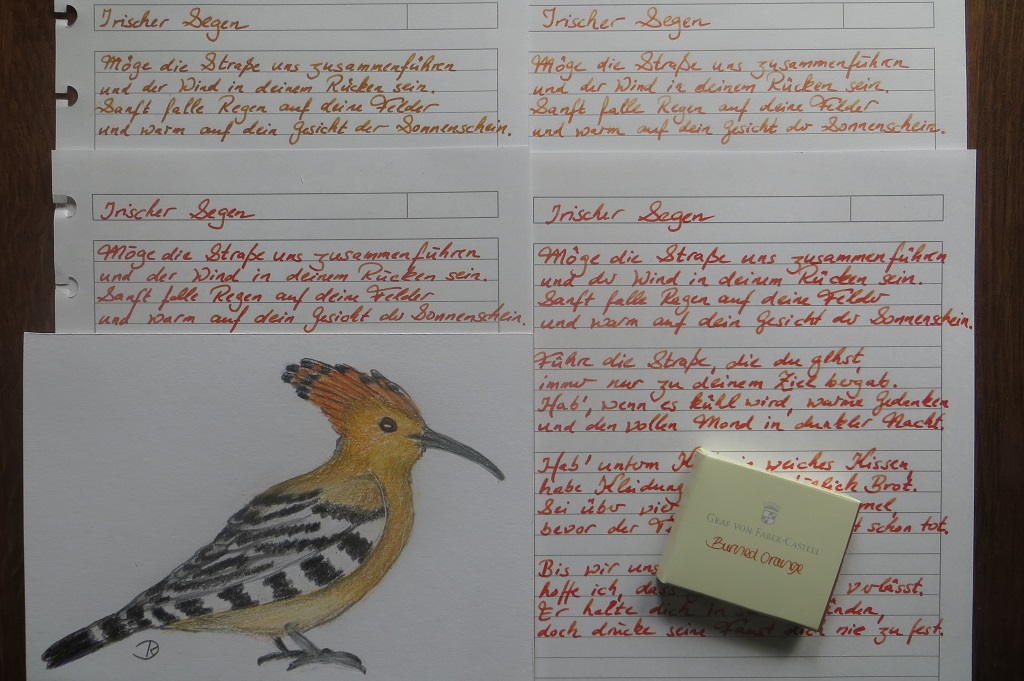 Irischer Segen
Möge die Straße uns zusammenführen
und der Wind in deinem Rücken sein.
Sanft falle Regen auf deine Felder
und warm auf dein Gesicht der Sonnenschein.
Irischer Segen
Möge die Straße uns zusammenführen
und der Wind in deinem Rücken sein.
Sanft falle Regen auf deine Felder
und warm auf dein Gesicht der Sonnenschein.
Irischer Segen
Möge die Straße uns zusammenführen
und der Wind in deinem Rücken sein.
Sanft falle Regen auf deine Felder
und warm auf dein Gesicht der Sonnenschein.
Irischer Segen
Möge die Straße uns zusammenführen
und der Wind in deinem Rücken sein.
Sanft falle Regen auf deine Felder
und warm auf dein Gesicht der Sonnenschein.
Führe die Straße, die du gehst,
immer nur zu deinem Ziel bergab.
Hab', wenn es kühl wird, warme Gedanken
und den vollen Mond in dunkler Nacht.
Hab' unterm weiches Kissen,
habe Kleidung Brot.
Sei über
bevor der schon tot.
Bis wir uns
hoffe ich, dass verlässt.
Er halte dich in
doch drücke seine Faust dich nie zu fest.
GRAF VON FABER-CASTELL
Burned Orange